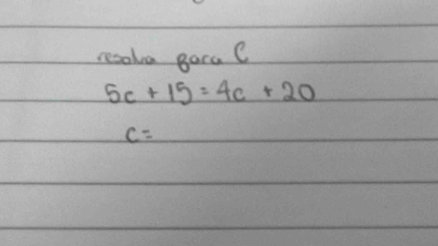 resolva para C
5c + 15 = 4c + 20
c =